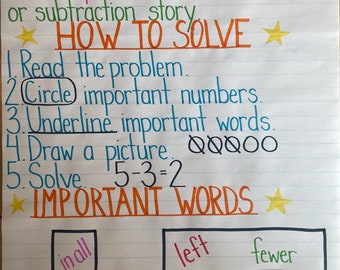 or subtraction story.
HOW TO SOLVE
1. Read the problem.
2. Circle important numbers.
3. Underline important words.
4. Draw a picture.
5. Solve. 5-3=2
IMPORTANT WORDS
in all left fewer